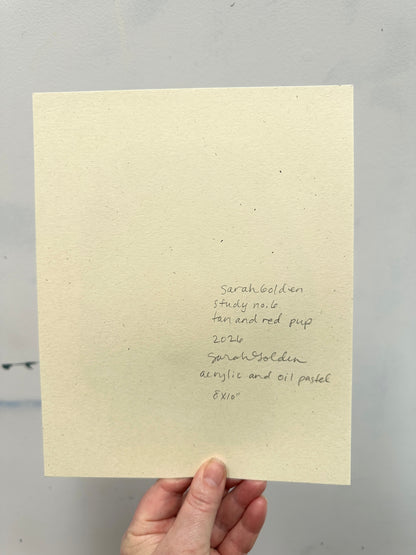 Sarah Golden
study no. 6
tan and red pup
2026
Sarah Golden
acrylic and oil pastel
8x10"